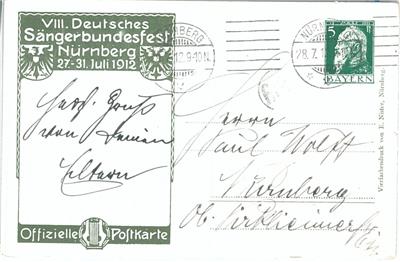 VIII. Deutsches
Sängerbundesfest
Nürnberg
27-31. Juli 1912
Herzl. Gruß
von Deinen
Eltern
Offizielle Postkarte
NÜRNBERG
12. 9-10 N.
NÜRN
28.7.1
5
BAYERN
Herrn
Paul Wolff
Nürnberg
Ob. Pirkheimerstr.
Vierfarbendruck von E. Nister, Nürnberg.